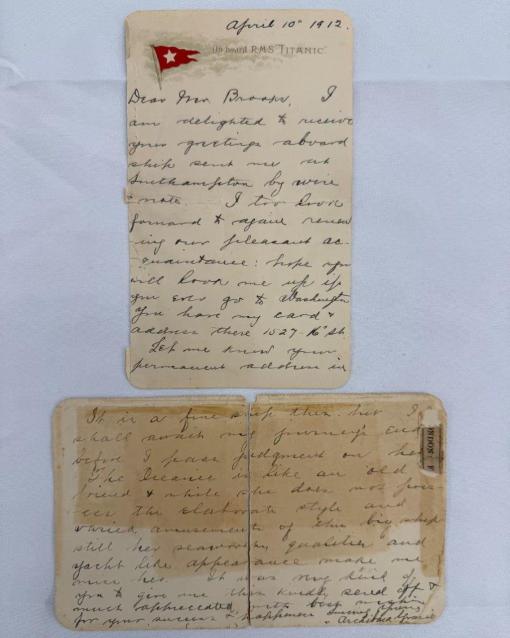 April 10th 1912.
On board R.M.S. "TITANIC"
Dear Mr. Brooks, I
am delighted to receive
your greetings aboard
ship sent me at
Southampton by wire
& note. I too look
forward to again renew
ing our pleasant ac-
quaintance: hope you
will look me up if
you ever go to Washington
You have my card &
address there 1527-16" St
Let me know your
permanent address in
It is a fine ship this but I
shall await my journey's end
before I pass judgment on her
The Oceanic is like an old
friend & while she does not poss
ess the elaborate style and
varied amusements of this big ship
still her seaworthy qualities and
yacht like appearance make me
miss her. It was very kind of
you to give me this kindly send off &
much appreciated with best wishes
for your success & happiness
Archibald Gracie